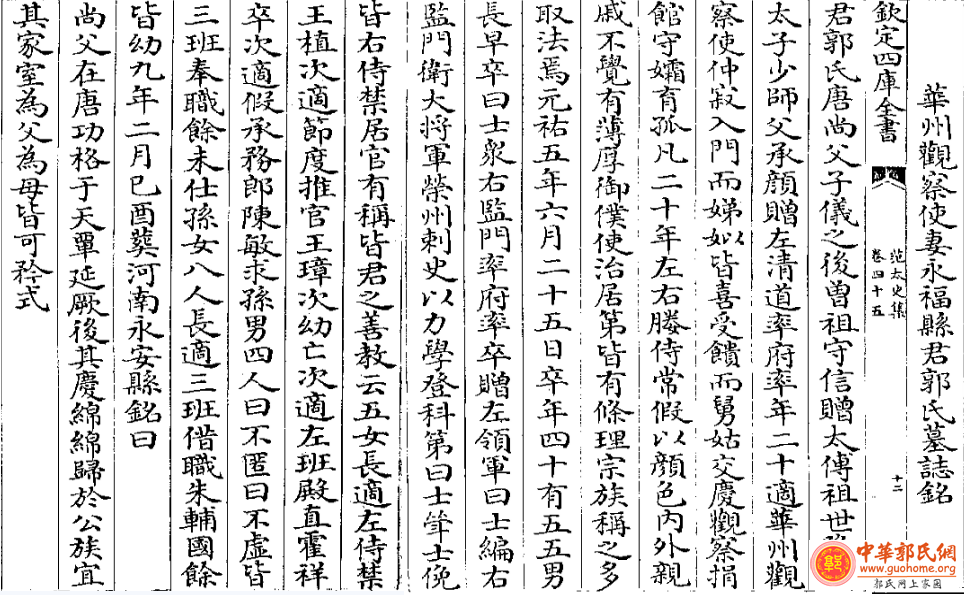 華州觀察使妻永福縣君郭氏墓誌銘
欽定四庫全書
范太史集
卷四十五
十二
君郭氏唐尚父子儀之後曽祖守信贈太傅祖世
太子少師父承顔贈左清道率府率年二十適華州觀
察使仲㕞入門而娣姒皆喜受饋而舅姑交慶觀察捐
館守孀育孤凡二十年左右媵侍常假以顔色内外親
戚不覺有薄厚御僕使治居第皆有條理宗族稱之多
取法焉元祐五年六月二十五日卒年四十有五五男
長早卒曰士衆右監門率府率卒贈左領軍曰士編右
監門衛大将軍榮州刺史以力學登科第曰士㒹士俛
皆右侍禁居官有稱皆君之善教云五女長適左侍禁
王植次適節度推官王璋次幼亡次適左班殿直霍祥
卒次適假承務郎陳敏求孫男四人曰不匿曰不虚皆
三班奉職餘未仕孫女八人長適三班借職朱輔國餘
皆幼九年二月巳酉葬河南永安縣銘曰
尚父在唐功格于天覃延厥後其慶綿綿歸於公族宜
其家室為父為母皆可矜式
中華郭氏網
www.guohome.org
郭氏网上家園